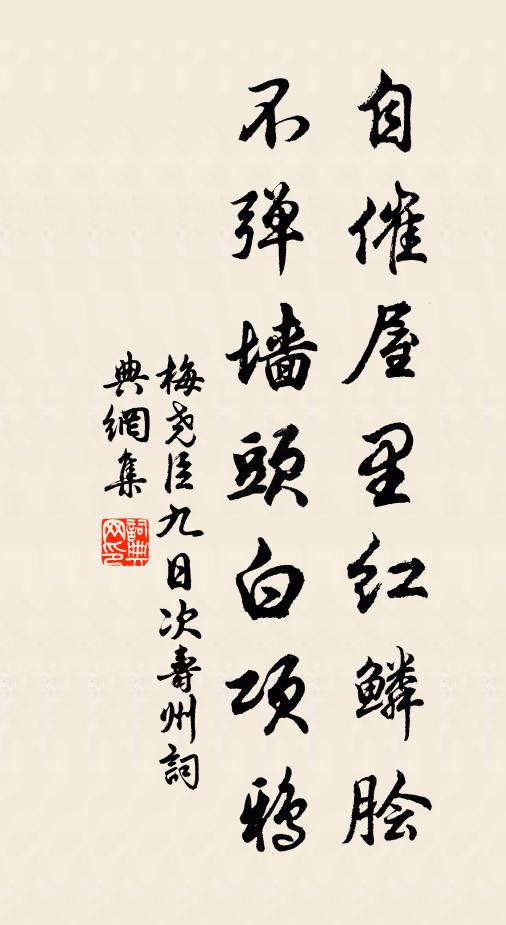 自催屋里红鳞脍
不弹墙頭白项鸦
梅尧臣九日次壽州詞
典網集
詞典
网印